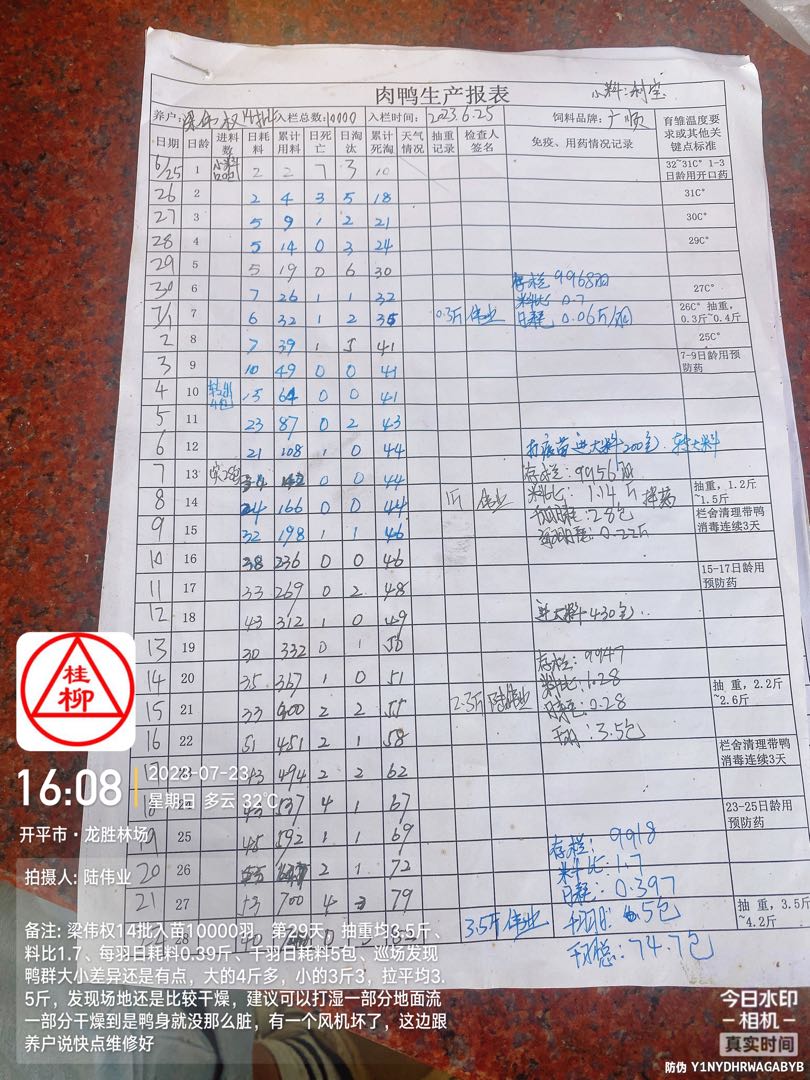 肉鸭生产报表 小料:利宝
养户: 梁伟权14批 入栏总数: 10000 入栏时间: 2023.6.25 饲料品牌: 广顺 育雏温度要求或其他关键点标准
日期 日龄 进料数 日耗料 累计用料 日死亡 日淘汰 累计死淘 天气情况 抽重记录 检查人签名 免疫、用药情况记录
6/25 1 小料 2 2 7 3 10 32~31C° 1-3日龄用开口药
26 2 2 4 3 5 18 31C°
27 3 5 9 1 2 21 30C°
28 4 5 14 0 3 24 29C°
29 5 5 19 0 6 30
30 6 7 26 1 1 32 存栏9968羽 27C°
7/1 7 6 32 1 2 35 0.3斤 伟业 料比0.7 日耗0.06斤/羽 26C° 抽重,0.3斤~0.4斤
2 8 7 39 1 5 41 25C°
3 9 10 49 0 0 41 7-9日龄用预防药
4 10 15 64 0 0 41
5 11 23 87 0 2 43
6 12 21 108 1 0 44 打疫苗 进大料200包 转大料
7 13 34 142 0 0 44 存栏:9956羽
8 14 24 166 0 0 44 1斤 伟业 料比:1.14斤 拌药 抽重,1.2斤~1.5斤
千羽日耗:2.8包
9 15 32 198 1 1 46 每羽日耗:0.22斤 栏舍清理带鸭消毒连续3天
10 16 38 236 0 0 46
11 17 33 269 0 2 48 15-17日龄用预防药
12 18 43 312 1 0 49 进大料430包
13 19 30 332 0 1 50
14 20 35 367 1 0 51 存栏:9947
15 21 33 400 2 2 55 2.3斤 陆伟业 料比:1.28 日耗:0.28 抽重,2.2斤~2.6斤
16 22 51 451 2 1 58 千羽:3.5包 栏舍清理带鸭消毒连续3天
17 23 43 494 2 2 62
18 24 43 537 4 1 67 23-25日龄用预防药
19 25 45 592 1 1 69 存栏:9918
20 26 55 647 2 1 72 料比:1.7
21 27 53 700 4 3 79 日耗:0.397
28 40 3.5斤 伟业 千羽日:5包 抽重,3.5斤~4.2斤
千羽总:74.7包
桂柳
16:08 2023-07-23
星期日 多云 32℃
开平市·龙胜林场
拍摄人: 陆伟业
备注: 梁伟权14批入苗10000羽。第29天。抽重均3.5斤、
料比1.7、每羽日耗料0.39斤、千羽日耗料5包、巡场发现
鸭群大小差异还是有点，大的4斤多，小的3斤3，拉平均3.
5斤，发现场地还是比较干燥，建议可以打湿一部分地面流
一部分干燥到是鸭身就没那么脏，有一个风机坏了，这边跟
养户说快点维修好
今日水印
-相机-
真实时间
防伪 Y1NYDHRWAGABYB